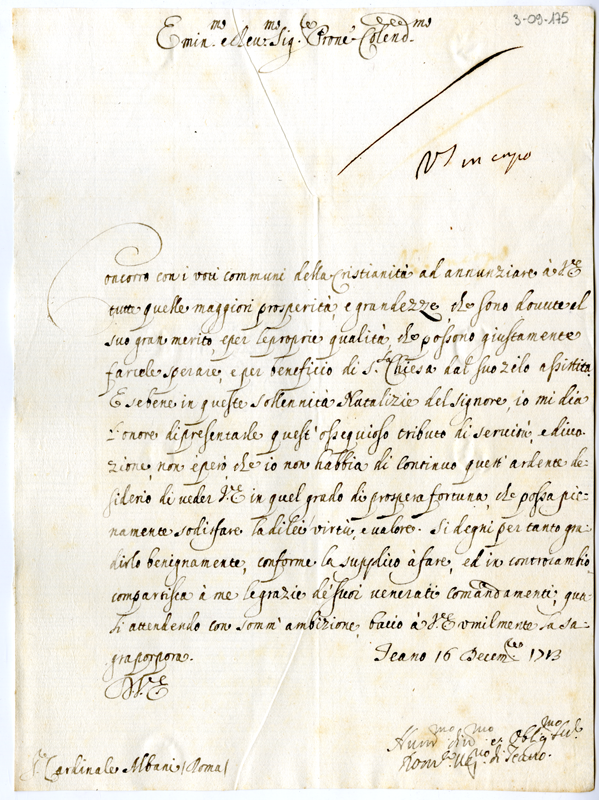 3-09-175
Emin.mo e Rev.mo Sig.re Prone Colend.mo
in capo
Concorro con i voti communi della Cristianità ad annunziare à V.E
tutte quelle maggiori prosperità, e grandezze, che sono dovute al
suo gran merito, e per le proprie qualità, che possono giustamente
farcele sperare, e per beneficio di S.ta Chiesa dal suo zelo assistita.
E sebene in queste sollennità Natalizie del Signore, io mi dia
l'onore di presentarle quest'ossequioso tributo di servitù, e divo-
zione, non è però, che io non habbia di continuo quest'ardente de-
siderio di veder V.E in quel grado di prospera fortuna, che possa pie-
namente sodisfare la di lei virtù, e valore. Si degni per tanto gra-
dirlo benignamente, conforme la supplico à fare, ed in controcambio
compartisca à me le grazie de' suoi venerati comandamenti, qua-
li attendendo con somm'ambizione, bacio à V.E umilmente la sa-
gra porpora. Teano 16 Decem.bre 1713
D.V.E
S.r Cardinale Albani (Roma)
Hum.mo div.mo et Obblig.mo Ser.
Vesc.o di Teano.